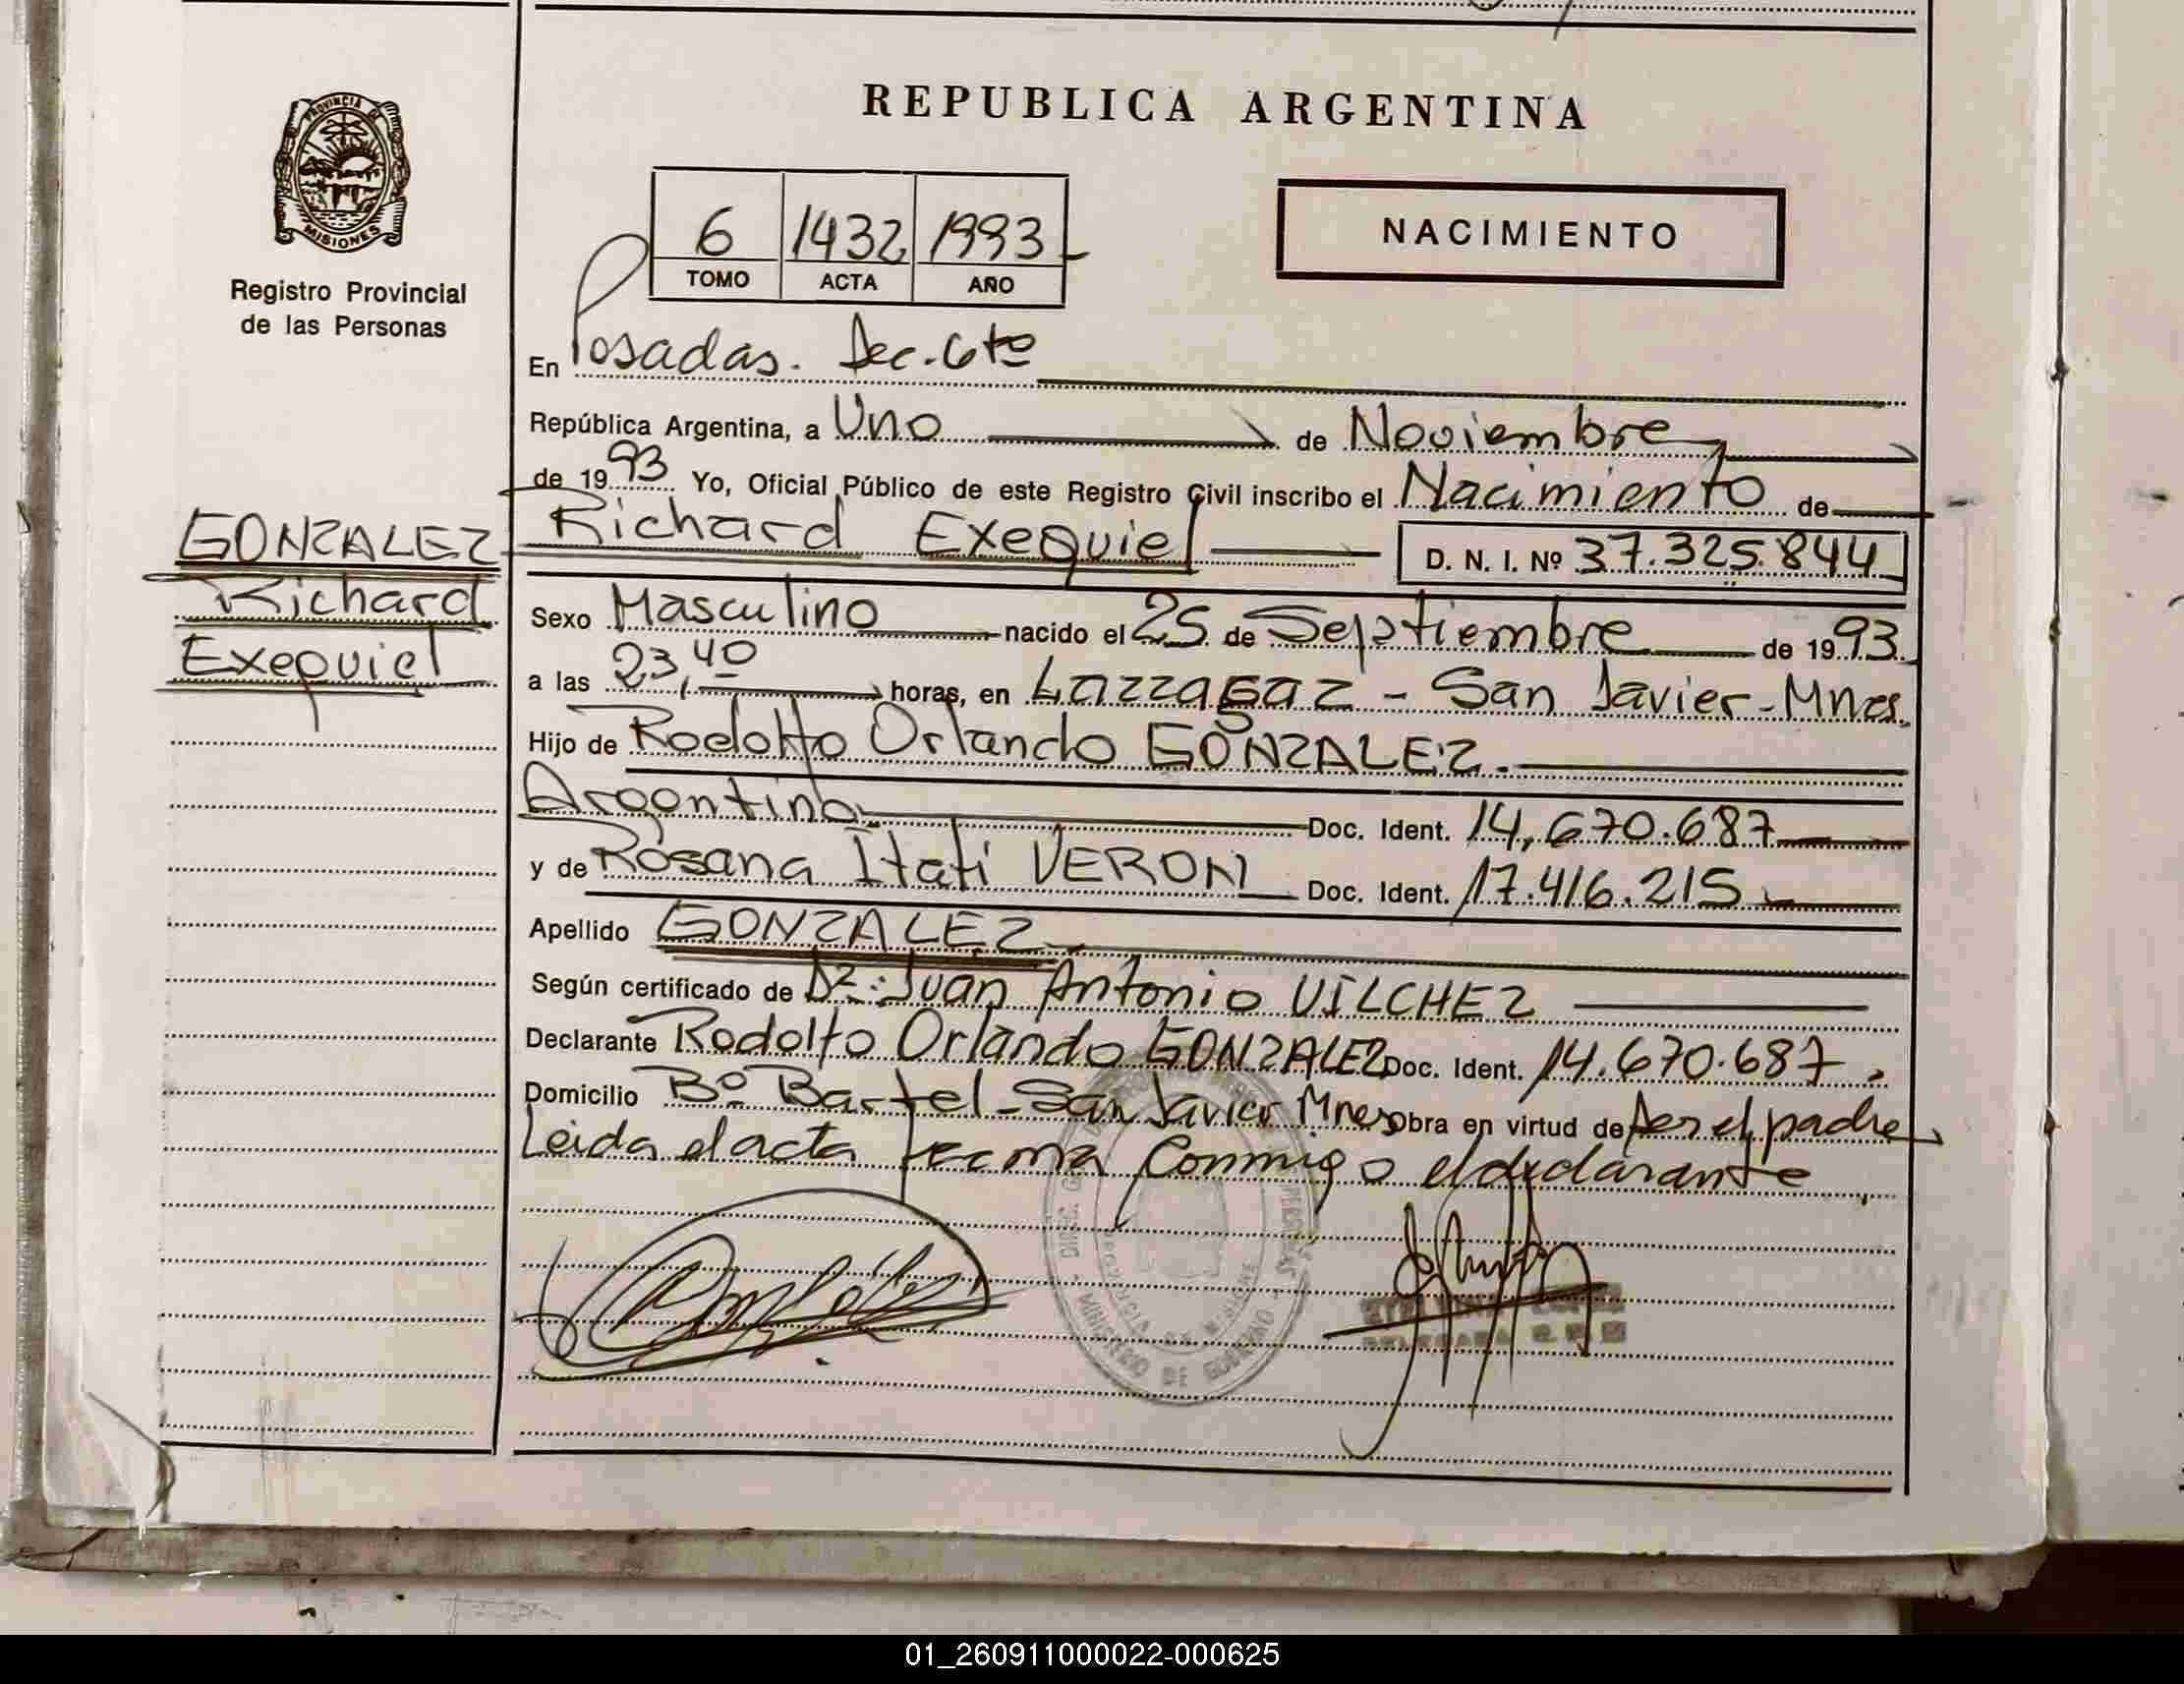 REPUBLICA ARGENTINA
PROVINCIA DE
MISIONES
Registro Provincial
de las Personas
6 1432 1993
TOMO ACTA AÑO
NACIMIENTO
En Posadas. Sec. 6ta
República Argentina, a Uno de Noviembre
de 1993 Yo, Oficial Público de este Registro Civil inscribo el Nacimiento de
GONZALEZ
Richard
Exequiel
Richard Exequiel D. N. I. Nº 37.325.844
Sexo Masculino nacido el 25 de Septiembre de 1993
a las 23,40 horas, en - San Javier - Mnes.
Hijo de Rodolfo Orlando GONZALEZ.
Argentino Doc. Ident. 14,670.687
y de Rosana Itatí VERON Doc. Ident. 17.416.215
Apellido GONZALEZ
Según certificado de Dr: Juan Antonio VILCHEZ
Declarante Rodolfo Orlando GONZALEZ Doc. Ident. 14.670.687
Domicilio Bº Bartel - San Javier Mnes Obra en virtud de ser el padre
Leida el acta firma Conmigo el declarante
01_260911000022-000625